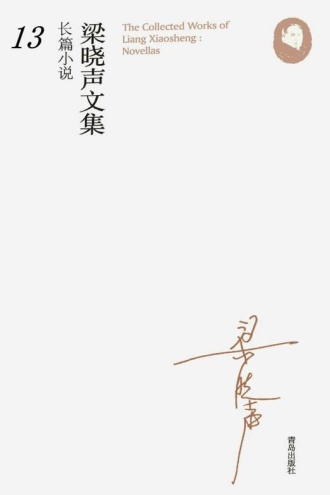 13
长篇小说
梁晓声文集
The Collected Works of
Liang Xiaosheng :
Novellas
梁晓声
青岛出版社